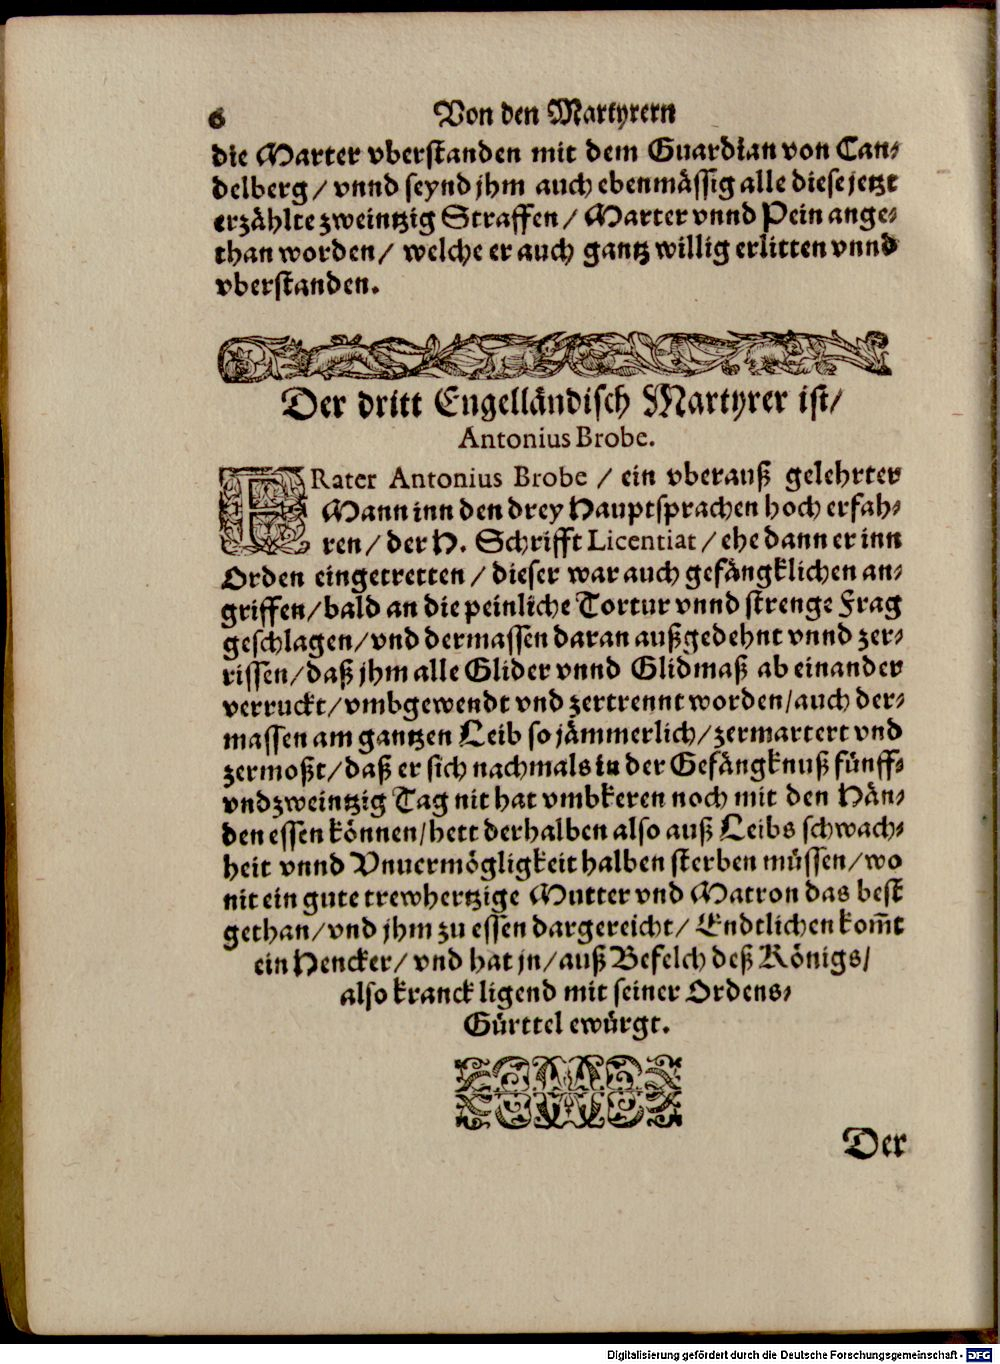 6 Von den Martyrern
die Marter vberstanden mit dem Guardian von Can-
delberg / vnnd seynd jhm auch ebenmässig alle diese jetzt
erzählte zweintzig Straffen / Marter vnnd Pein ange-
than worden / welche er auch gantz willig erlitten vnnd
vberstanden.
Der dritt Engelländisch Martyrer ist /
Antonius Brobe.
FRater Antonius Brobe / ein vberauß gelehrter
Mann inn den drey Hauptsprachen hoch erfah-
ren / der H. Schrifft Licentiat / ehe dann er inn
Orden eingetretten / dieser war auch gefängklichen an-
griffen / bald an die peinliche Tortur vnnd strenge Frag
geschlagen / vnd dermassen daran außgedehnt vnnd zer-
rissen / daß jhm alle Glider vnnd Glidmaß ab einander
verruckt / vmbgewendt vnd zertrennt worden / auch der-
massen am gantzen Leib so jämmerlich / zermartert vnd
zermoßt / daß er sich nachmals in der Gefängknuß fünff-
vnd zweintzig Tag nit hat vmbkeren noch mit den Hän-
den essen können / hett derhalben also auß Leibs schwach-
heit vnnd Vnuermögligkeit halben sterben müssen / wo
nit ein gute trewhertzige Mutter vnd Matron das best
gethan / vnd jhm zu essen dargereicht / Endtlichen kom̃t
ein Hencker / vnd hat jn / auß Befelch deß Königs /
also kranck ligend mit seiner Ordens-
Gürttel ewürgt.
Der
Digitalisierung gefördert durch die Deutsche Forschungsgemeinschaft - DFG